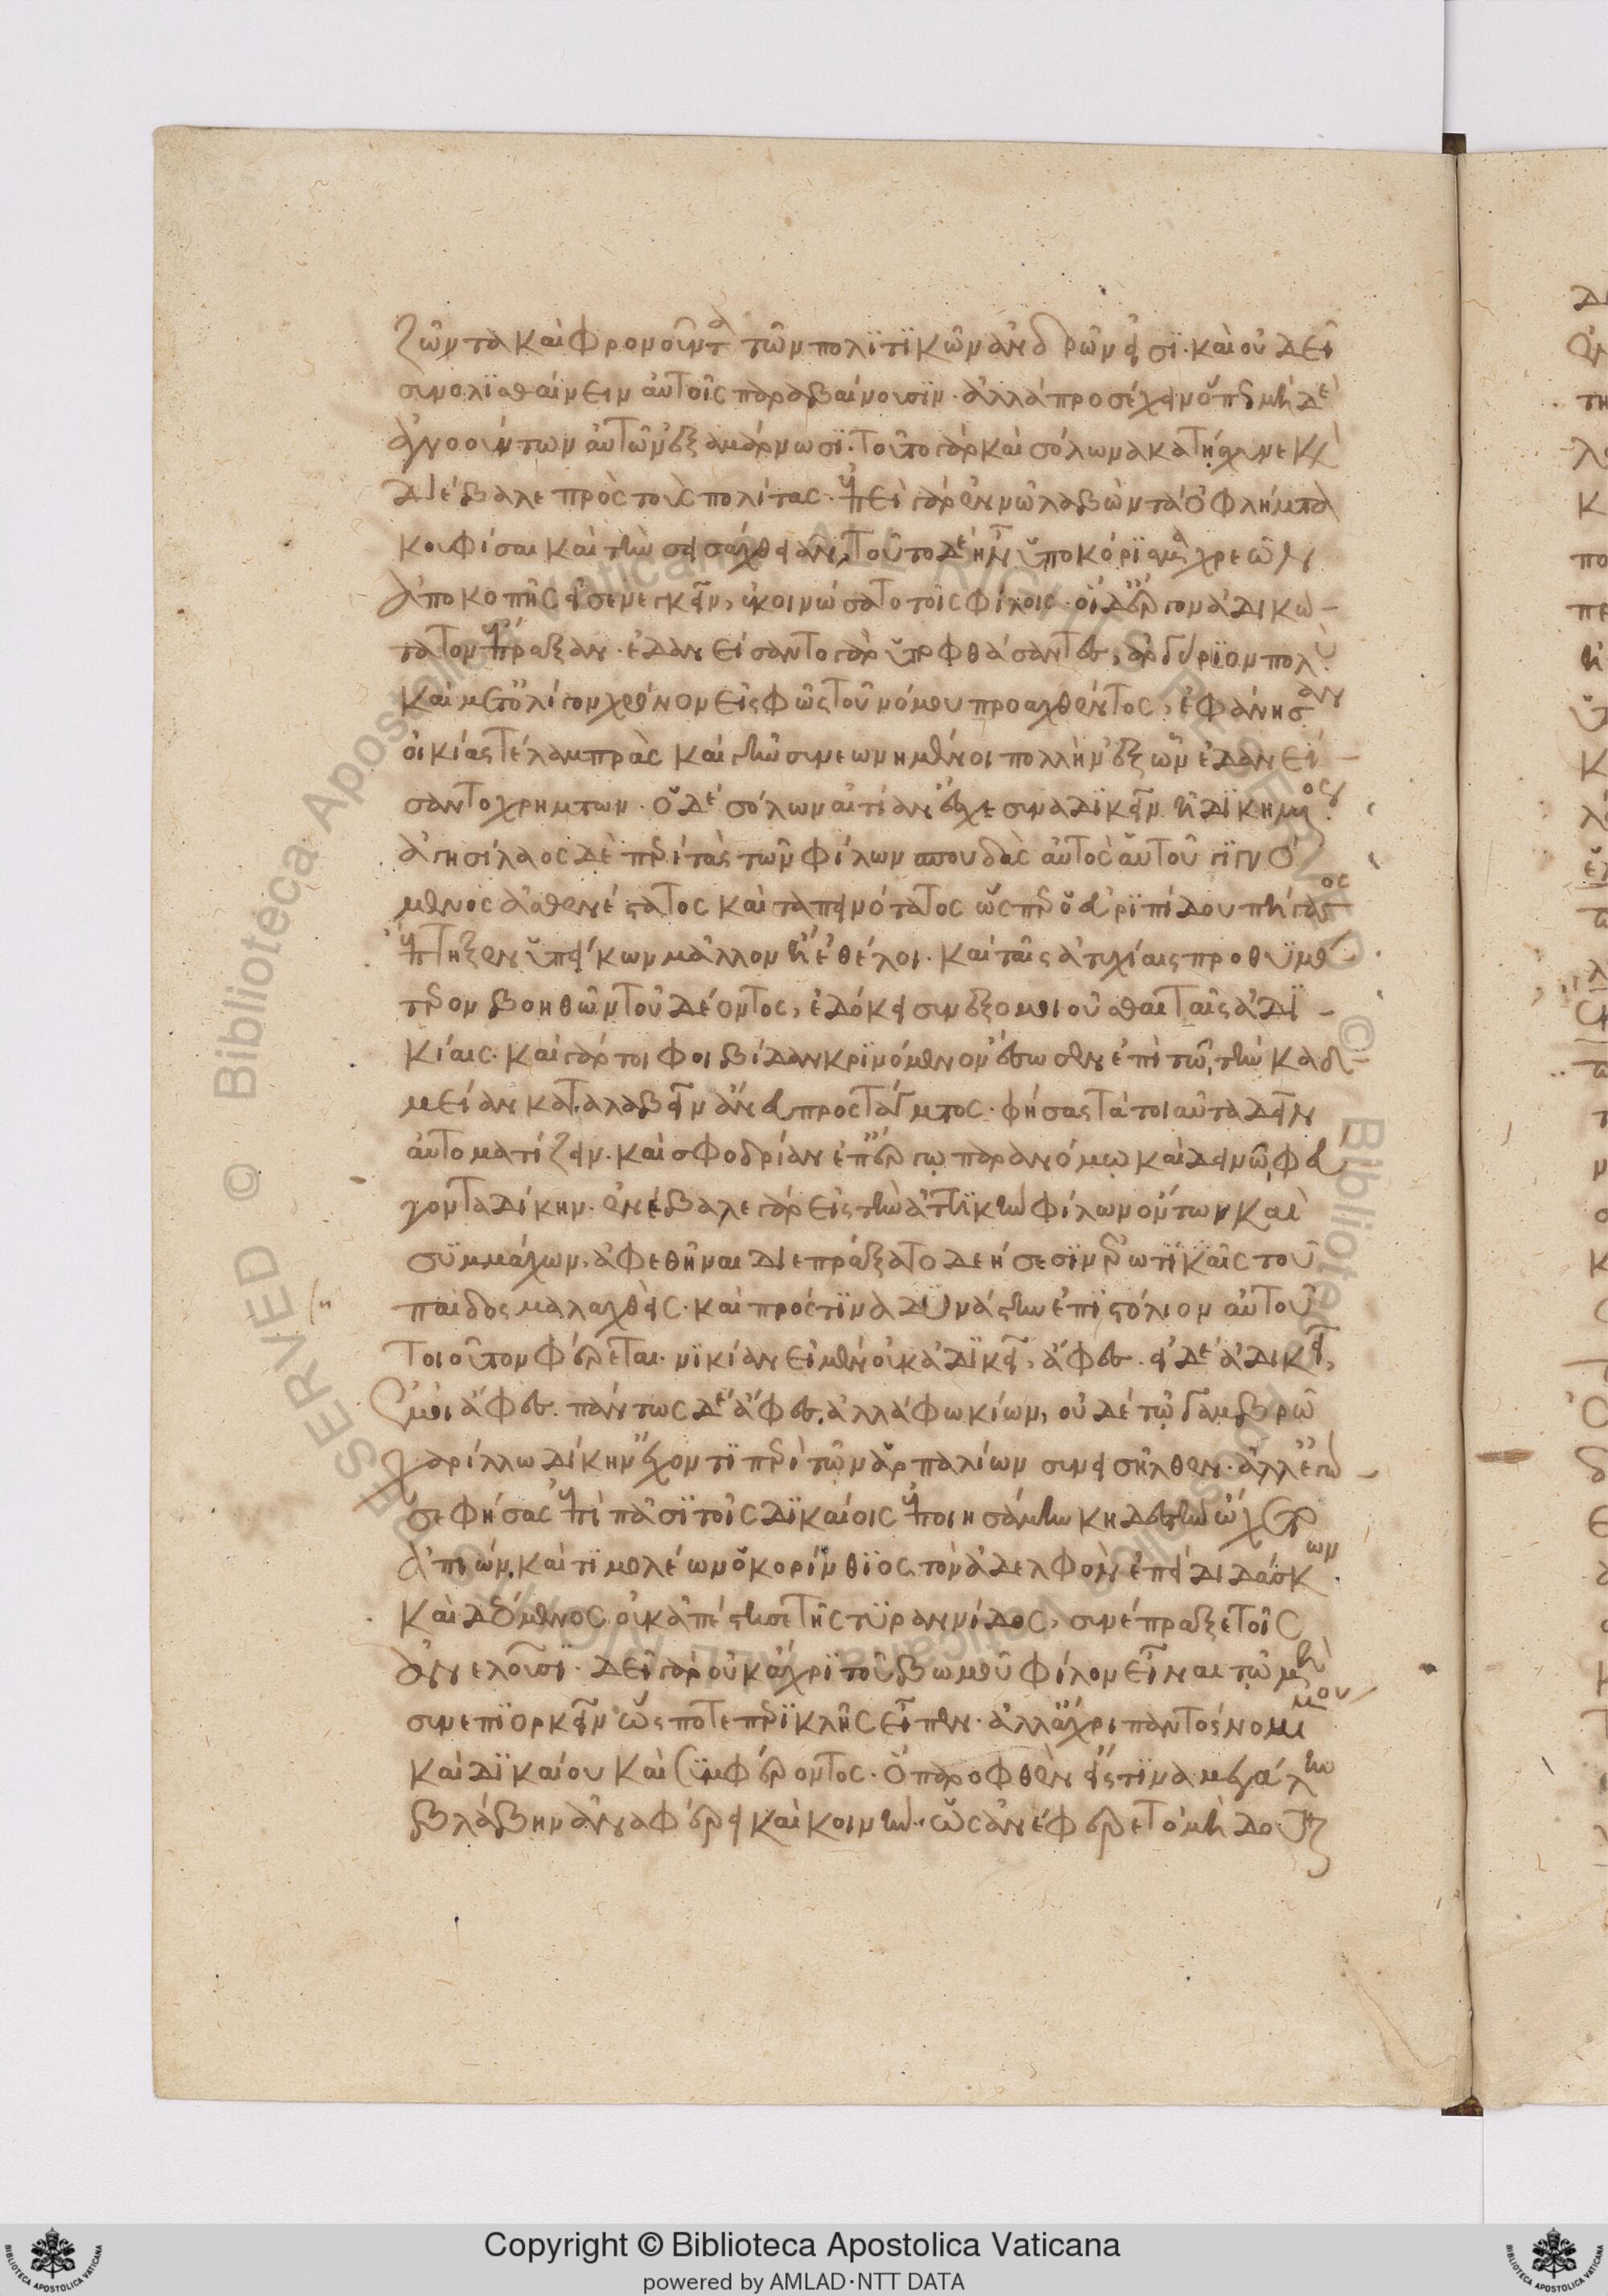 ζῶντα καὶ φρονοῦντα τῶν πολϊτϊκῶν ἀνδρῶν εἰσϊ· καὶ οὐ δεῖ
συνολϊσθαίνειν αὐτοῖς παραβαίνουσϊν· ἀλλὰ προσέχειν ὅπως μὴ δὲ
ἀγνοούντων αὐτῶν ἐξαμάρνωσϊ· τοῦτο γὰρ καὶ σόλωνα κατήσχυνε καὶ
διέβαλε πρὸς τοὺς πολίτας· ἐπεὶ γὰρ ἐν νῶ λαβὼν τὰ ὀφλήματα
κουφίσαι καὶ τὴν σεισάχθειαν, τοῦτο δὲ ἦν ὑποκόρϊσμα χρεῶν
ἀποκοπῆς εἰσενεγκεῖν, ἐκοινώσατο τοῖς φίλοις· οἱ δ' ἔργον ἀδικώ-
τατον ἔπραξαν· ἐδανείσαντο γὰρ ὑποφθάσαντες, ἀργύρϊον πολὺ
καὶ μετ' ὀλίγον χρόνον εἰς φῶς τοῦ νόμου προαχθέντος, ἐφάνησαν
οἰκίας τὲ λαμπρὰς καὶ γῆν συνεωνημένοι πολλὴν ἐξ ὧν ἐδανεί-
σαντο χρημάτων· ὁ δὲ σόλων αἰτίαν ἔσχε συναδϊκεῖν ἠδϊκημένος
ἀγησίλαος δὲ περὶ τὰς τῶν φίλων σπουδὰς αὐτὸς αὑτοῦ γϊγνό
μενος ἀσθενέστατος καὶ ταπεινότατος ὥσπερ ὁ εὐρϊπίδου πήγασος
ἔπτηξεν ὑπείκων μᾶλλον ἢ ἐθέλοι· καὶ ταῖς ἀτυχίαις προθυμό
τερον βοηθῶν τοῦ δέοντος, ἐδόκει συνεξομοιοῦσθαι ταῖς ἀδϊ-
κίαις· καὶ γάρ τοι φοιβίδαν κρϊνόμενον ἔσωσεν ἐπὶ τῶ, τὴν καδ-
μείαν καταλαβεῖν ἄνευ προστάγματος· φήσας τὰ τοιαῦτα δεῖν
αὐτοματίζειν· καὶ σφοδρίαν ἐπ' ἔργω παρανόμω καὶ δεινῶ, φεύ
γοντα δίκην· ἐνέβαλε γὰρ εἰς τὴν ἀττϊκὴν φίλων ὄντων καὶ
συμμάχων, ἀφεθῆναι διεπράξατο δεήσεσϊν ἐρωτϊκαῖς τοῦ
παιδὸς μαλαχθεὶς· καὶ πρός τϊνα δυνάστην ἐπϊστόλιον αὐτοῦ
τοιοῦτον φέρεται· νϊκίαν εἰ μὲν οὐκ ἀδϊκεῖ, ἄφες· εἰ δὲ ἀδικεῖ,
ἐμοὶ ἄφες· πάντως δὲ ἄφες, ἀλλὰ φωκίων, οὐδὲ τῶ γαμβρῶ
χαρίλλω δίκην ἔχοντϊ περὶ τῶν ἁρπαλίων συνεισῆλθεν· ἀλλ' ἐγώ
σε φήσας ἐπὶ πᾶσϊ τοῖς δϊκαίοις ἐποιησάμην κηδεστὴν ὤχετο
ἀπιών, καὶ τϊμολέων ὁ κορίνθϊος, τὸν ἀδελφὸν ἐπεὶ διδάσκων
καὶ δεόμενος οὐκ ἀπέστησε τῆς τυραννίδος, συνέπραξε τοῖς
ἀνελοῦσϊ· δεῖ γὰρ οὐκ ἄχρϊ τοῦ βωμοῦ φίλον εἶναι τῶ μὴ
συνεπϊορκεῖν ὥς ποτε περϊκλῆς εἶπεν· ἀλλ' ἄχρι παντὸς νομίμου
καὶ δϊκαίου καὶ συμφέροντος· ὃ παροφθὲν εἴς τϊνα μεγάλην
βλάβην ἀναφέρει καὶ κοινὴν· ὡς ἀνέφερε τὸ μὴ δοῦναι